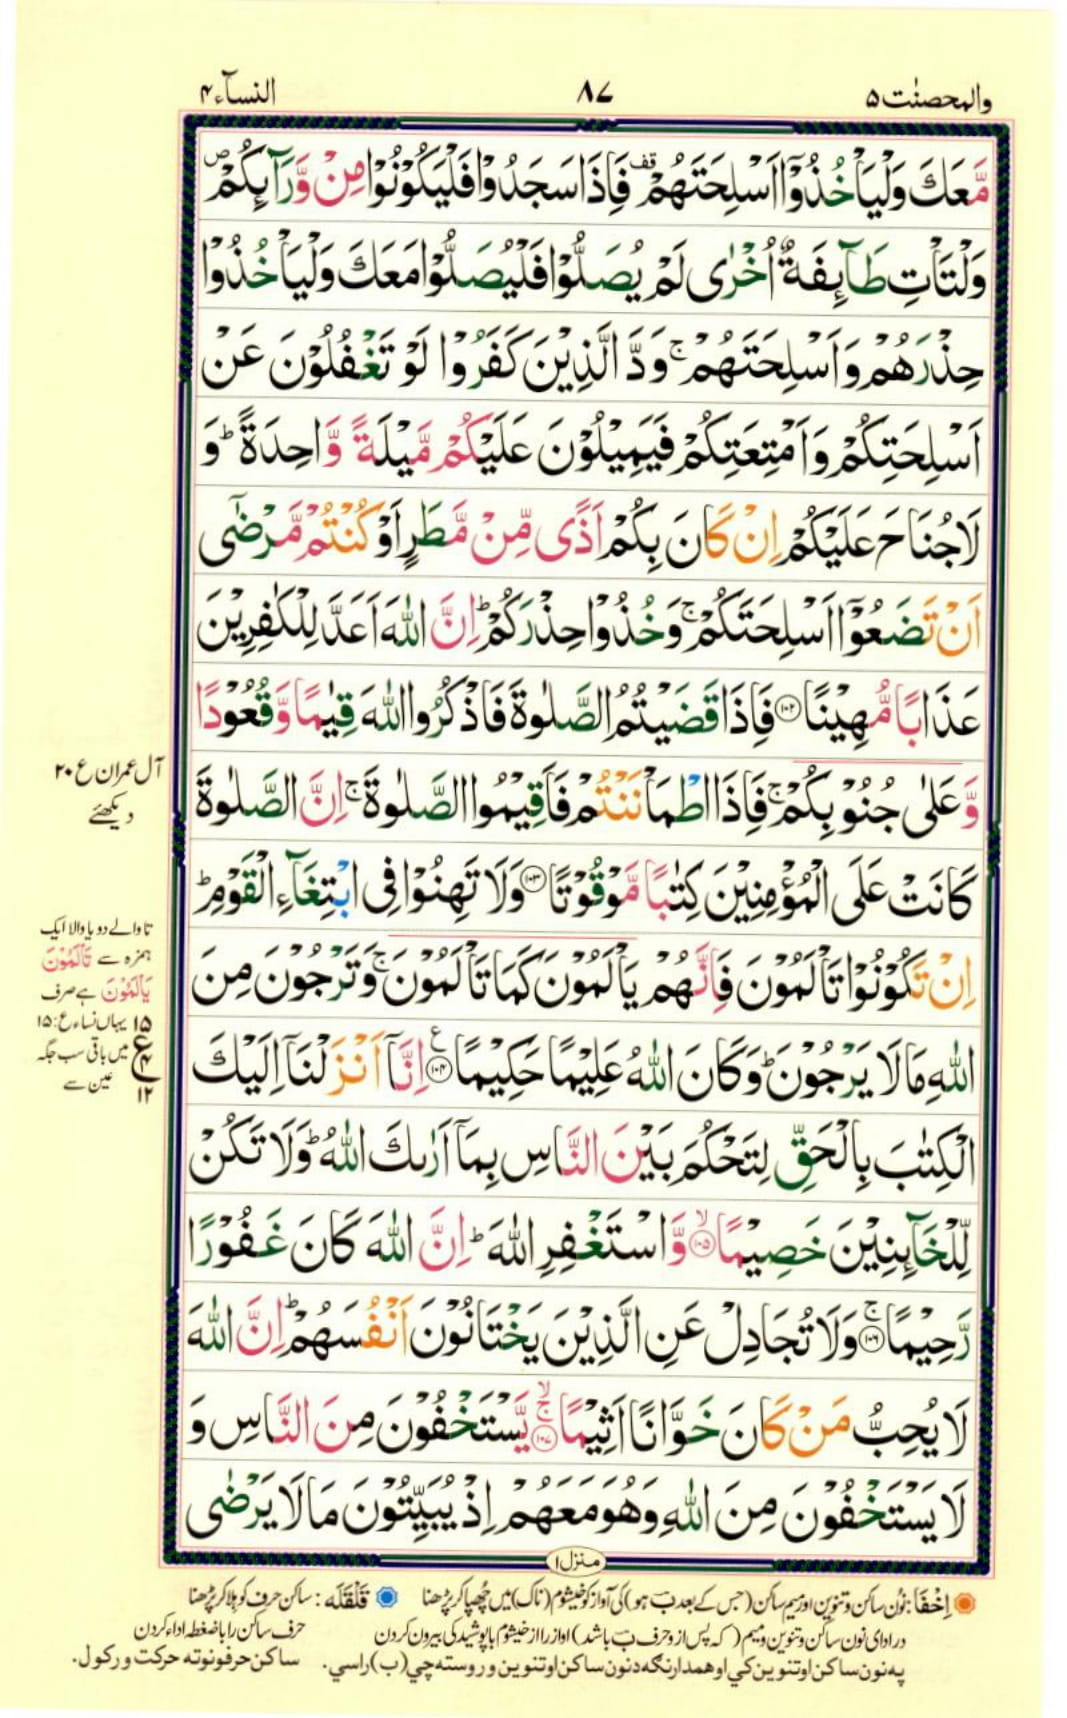 والمحصنٰت ۵
۸۷
النسآء ۴
مَّعَكَ وَلْيَاْخُذُوْۤا اَسْلِحَتَهُمْ ۫ قف فَاِذَا سَجَدُوْا فَلْيَكُوْنُوْا مِنْ وَّرَآىِٕكُمْ ۪ ص
وَلْتَاْتِ طَآىِٕفَةٌ اُخْرٰى لَمْ يُصَلُّوْا فَلْيُصَلُّوْا مَعَكَ وَلْيَاْخُذُوْا
حِذْرَهُمْ وَاَسْلِحَتَهُمْ ۚ وَدَّ الَّذِيْنَ كَفَرُوْا لَوْ تَغْفُلُوْنَ عَنْ
اَسْلِحَتِكُمْ وَاَمْتِعَتِكُمْ فَيَمِيْلُوْنَ عَلَيْكُمْ مَّيْلَةً وَّاحِدَةً ؕ وَ
لَا جُنَاحَ عَلَيْكُمْ اِنْ كَانَ بِكُمْ اَذًى مِّنْ مَّطَرٍ اَوْ كُنْتُمْ مَّرْضٰۤى
اَنْ تَضَعُوْۤا اَسْلِحَتَكُمْ ۚ وَخُذُوْا حِذْرَكُمْ ؕ اِنَّ اللّٰهَ اَعَدَّ لِلْكٰفِرِيْنَ
عَذَابًا مُّهِيْنًا ۝۱۰۲ فَاِذَا قَضَيْتُمُ الصَّلٰوةَ فَاذْكُرُوا اللّٰهَ قِيٰمًا وَّقُعُوْدًا
وَّعَلٰى جُنُوْبِكُمْ ۚ فَاِذَا اطْمَاْنَنْتُمْ فَاَقِيْمُوا الصَّلٰوةَ ۚ اِنَّ الصَّلٰوةَ
كَانَتْ عَلَى الْمُؤْمِنِيْنَ كِتٰبًا مَّوْقُوْتًا ۝۱۰۳ وَلَا تَهِنُوْا فِى ابْتِغَآءِ الْقَوْمِ ؕ
اِنْ تَكُوْنُوْا تَاْلَمُوْنَ فَاِنَّهُمْ يَاْلَمُوْنَ كَمَا تَاْلَمُوْنَ ۚ وَتَرْجُوْنَ مِنَ
اللّٰهِ مَا لَا يَرْجُوْنَ ؕ وَكَانَ اللّٰهُ عَلِيْمًا حَكِيْمًا ۝۱۰۴ ع اِنَّاۤ اَنْزَلْنَاۤ اِلَيْكَ
الْكِتٰبَ بِالْحَقِّ لِتَحْكُمَ بَيْنَ النَّاسِ بِمَاۤ اَرٰىكَ اللّٰهُ ؕ وَلَا تَكُنْ
لِّلْخَآىِٕنِيْنَ خَصِيْمًا ۝۱۰۵ ۙ وَّاسْتَغْفِرِ اللّٰهَ ؕ اِنَّ اللّٰهَ كَانَ غَفُوْرًا
رَّحِيْمًا ۝۱۰۶ ۚ وَلَا تُجَادِلْ عَنِ الَّذِيْنَ يَخْتَانُوْنَ اَنْفُسَهُمْ ؕ اِنَّ اللّٰهَ
لَا يُحِبُّ مَنْ كَانَ خَوَّانًا اَثِيْمًا ۝۱۰۷ ۙۚ يَّسْتَخْفُوْنَ مِنَ النَّاسِ وَ
لَا يَسْتَخْفُوْنَ مِنَ اللّٰهِ وَهُوَ مَعَهُمْ اِذْ يُبَيِّتُوْنَ مَا لَا يَرْضٰى
منزل ۱
آل عمران ع ۲۰
دیکھئے
تا والے دو یا والا ایک
ہمزہ سے تَاْلَمُوْنَ
يَاْلَمُوْنَ ہے صرف
یہاں نساء ع: ۱۵
میں باقی سب جگہ
عین سے
۱۵
ع
۴
۱۲
اِخْفَا: نون ساکن و تنوین اور میم ساکن (جس کے بعد ب ہو) کی آواز کو خیشوم (ناک) میں چُھپا کر پڑھنا
قَلْقَلَه: ساکن حرف کو ہلا کر پڑھنا
در ادای نون ساکن و تنوین و میم (که پس از و حرف ب باشد) اواز را از خیشوم با پوشیدگی بیرون کردن
حرف ساکن را با ضغطه ادا کردن
په نون ساکن او تنوین کي او همدارنګه د نون ساکن او تنوین وروسته چي (ب) راسي.
ساکن حرفونو ته حرکت ورکول.